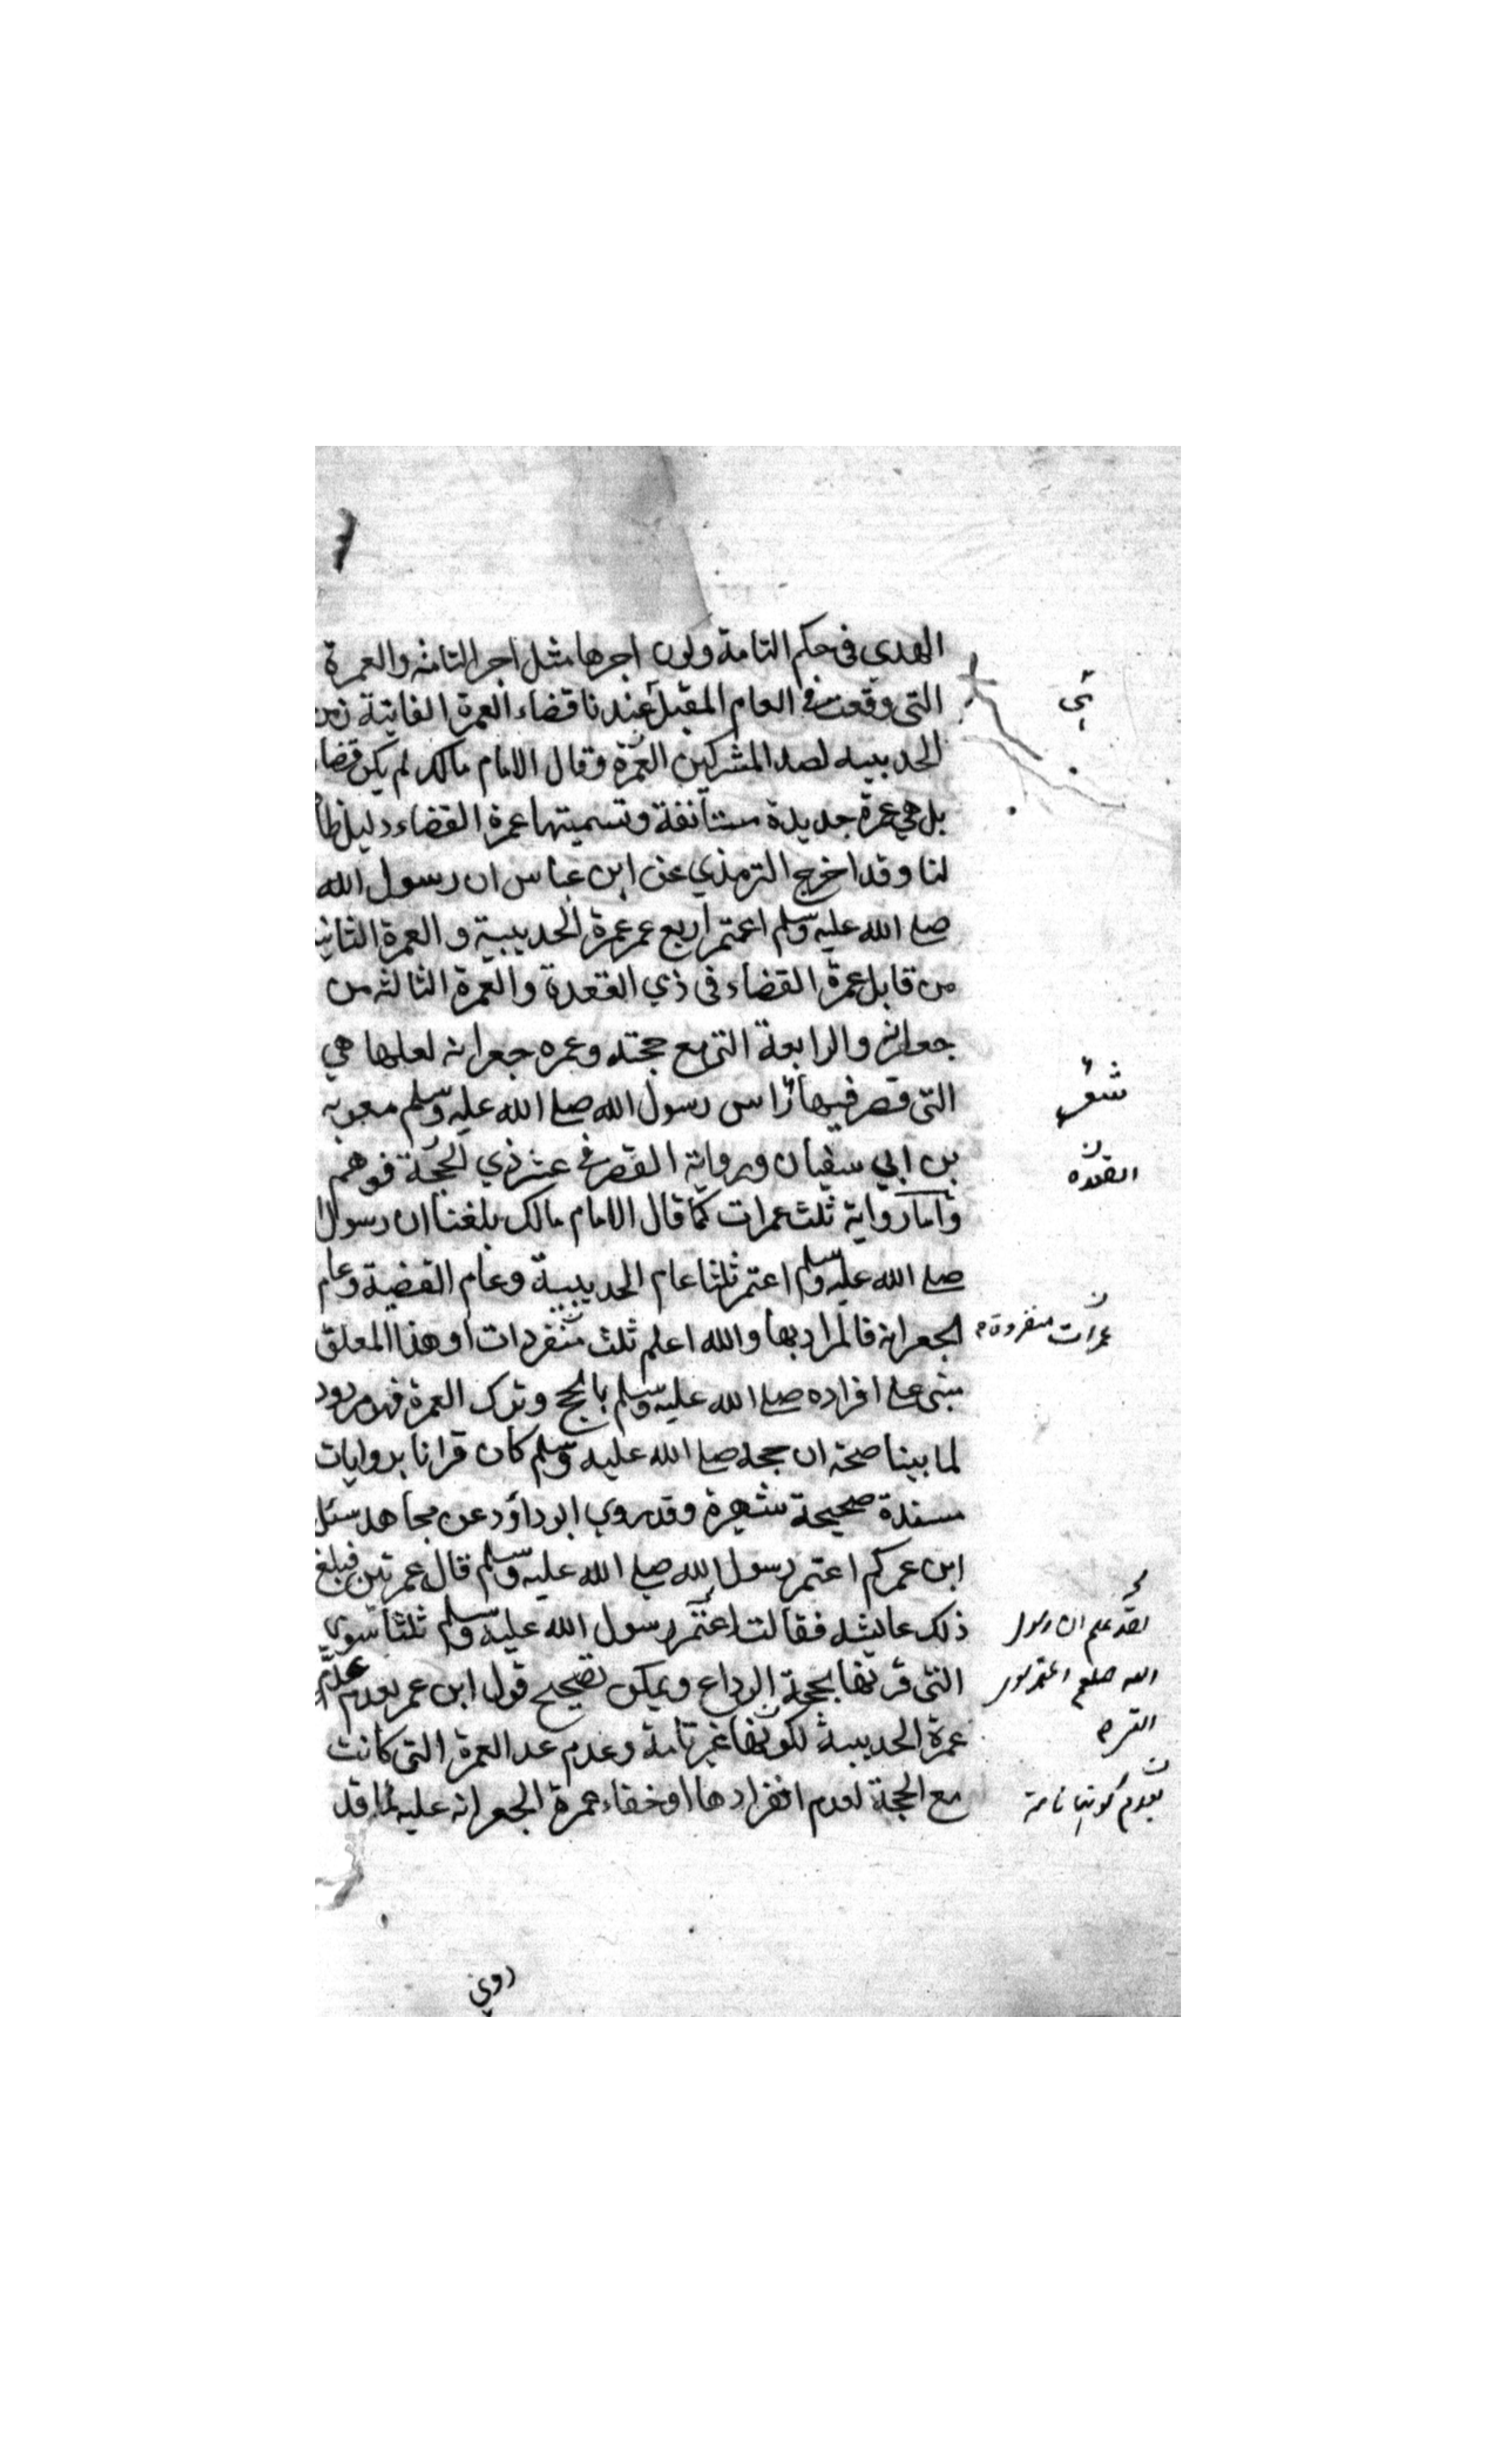 الهدي في حكم التامة ولون اجرها مثل اجر التامة والعمرة
التي وقعت في العام المقبل عندنا قضاء العمرة الفايتة زمن
الحديبيه لصد المشركين العمرة وقال الامام مالك لم يكن قضاء
بل هي عمرة جديدة مستأنفة وتسميتها عمرة القضاء دليل
لنا وقد اخرج الترمذي عن ابن عباس ان رسول الله
صلى الله عليه وسلم اعتمر اربع عمر عمرة الحديبية و العمرة الثانية
من قابل عمرة القضاء في ذي القعدة والعمرة الثالثه من
جعرانه والرابعة التي مع حجته وعمره جعرانه لعلها هي
التي قصر فيها راس رسول الله صلى الله عليه وسلم معويه
بن ابي سفيان ورواية القصر في عشر ذي الحجة فوهم
وأما رواية ثلث عمرات كما قال الامام مالك بلغنا ان رسول
صلى الله عليه وسلم اعتمر ثلثا عام الحديبية وعام القضية وعام
الجعرانه فالمراد بها والله اعلم ثلث منفردات او هذا المعلق
مبنى على افراده صلى الله عليه وسلم بالحج وترك العمرة فهو مردود
لما بينا صحة ان حجه صلى الله عليه وسلم كان قرانا بروايات
مسندة صحيحة شهيرة وقد روي ابو داؤد عن مجاهد سئل
ابن عمر كم اعتمر رسول الله صلى الله عليه وسلم قال عمرتين فبلغ
ذلك عايشه فقالت اعتمر رسول الله عليه وسلم ثلثا سوي
التي قرنها بحجة الوداع ويمكن تصحيح قول ابن عمر بعدم
عمرة الحديبية لكونها غير تامة وعدم عد العمرة التي كانت
مع الحجة لعدم انفرادها او خفاء عمرة الجعرانه عليه لما قد
شعر
القعدة
عمرات منفردة
لقد علم ان رسول
الله صلعم اعتمر
بعدم كونها تامة
روي